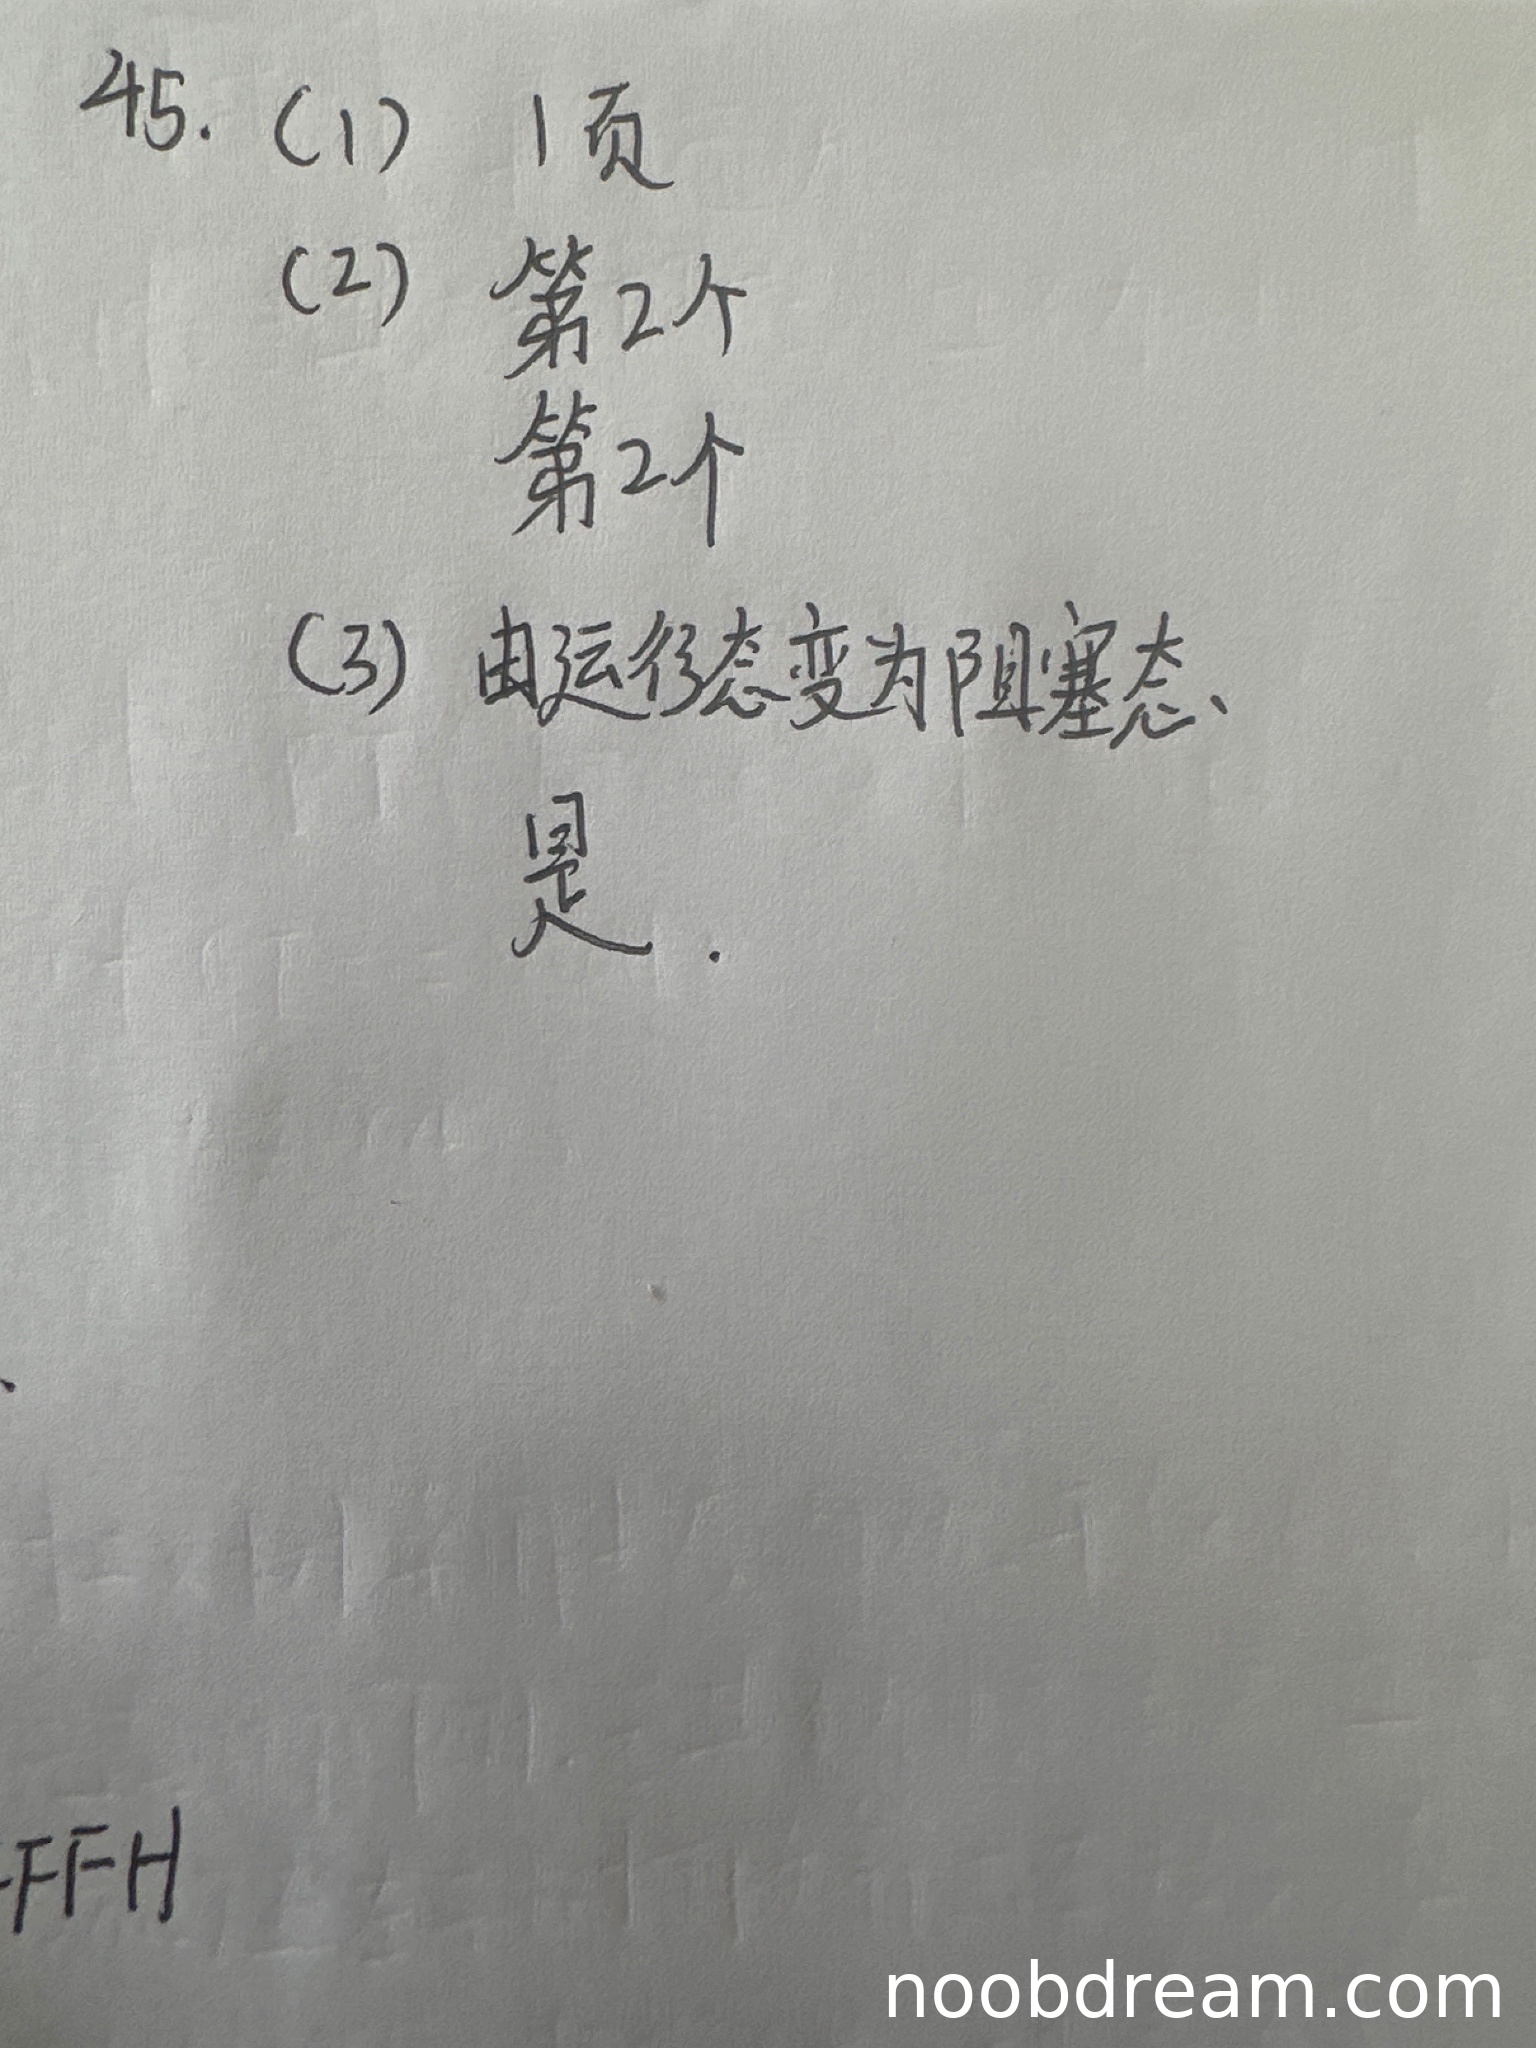 45. (1) 1页
(2) 第2个
第2个
(3) 由运行态变为阻塞态、
是.
FFFH
noobdream.com